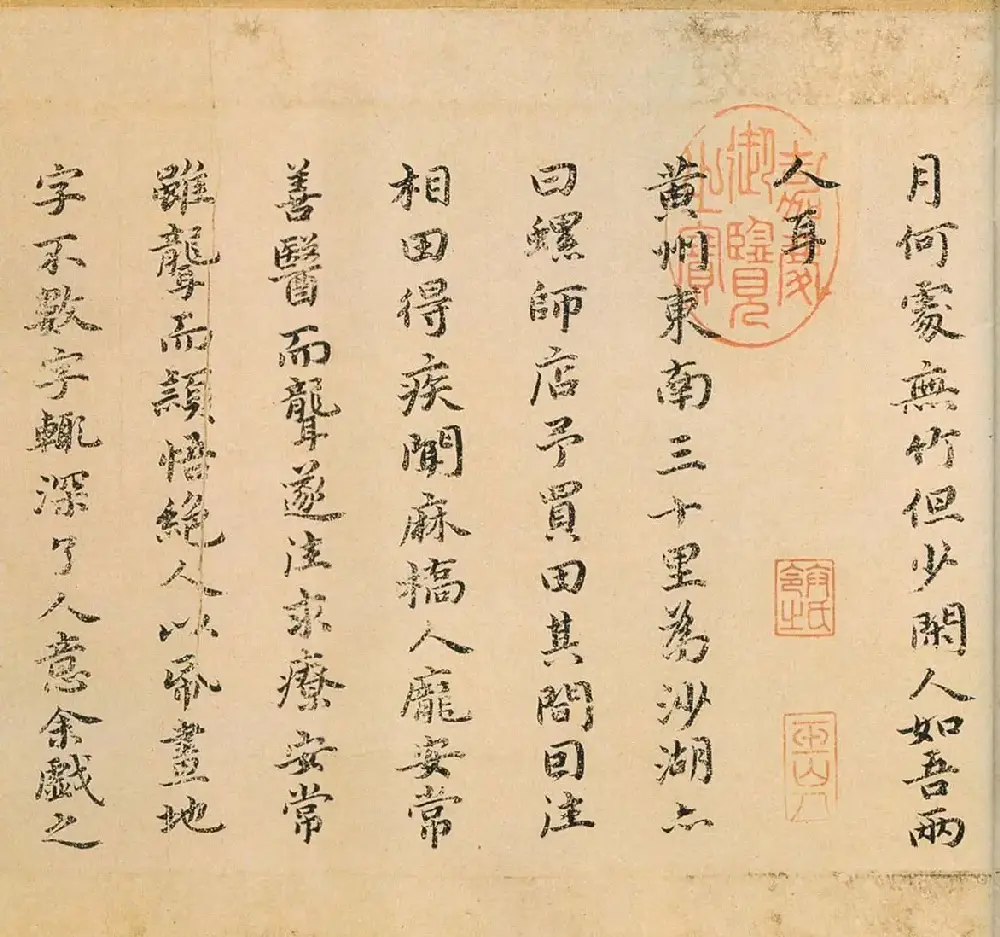 月何處無竹但少閑人如吾兩
人耳
黄州東南三十里為沙湖亦
曰螺師店予買田其間因往
相田得疾聞麻橋人龐安常
善醫而聾遂往求療安常
雖聾而穎悟絕人以帋畫地
字不數字輒深了人意余戲之
嘉慶御覽之寶